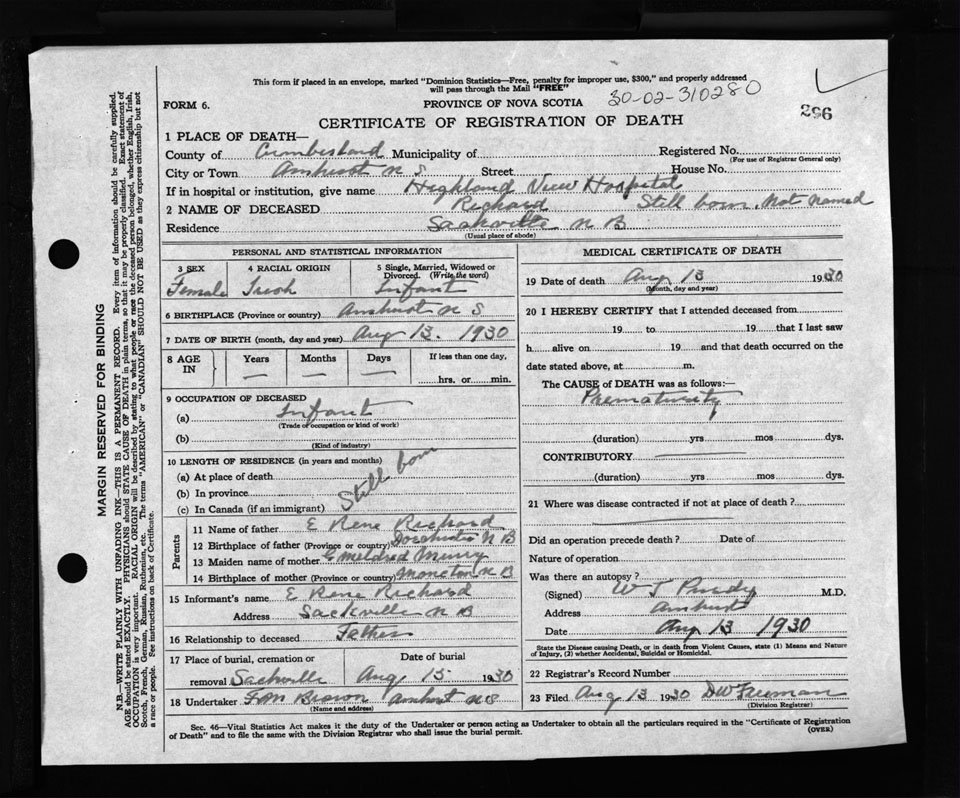 This form if placed in an envelope, marked "Dominion Statistics—Free, penalty for improper use, $300," and properly addressed
will pass through the Mail "FREE"
30-02-310280
FORM 6.
PROVINCE OF NOVA SCOTIA
296
CERTIFICATE OF REGISTRATION OF DEATH
1 PLACE OF DEATH—
County of Cumberland Municipality of Registered No.
(For use of Registrar General only)
City or Town Amherst N S Street House No.
If in hospital or institution, give name Highland View Hospital
2 NAME OF DECEASED Richard Still born. Not Named
Residence Sackville N B
(Usual place of abode)
PERSONAL AND STATISTICAL INFORMATION
3 SEX 4 RACIAL ORIGIN 5 Single, Married, Widowed or
Divorced. (Write the word)
Female Infant
6 BIRTHPLACE (Province or country) Amherst N S
7 DATE OF BIRTH (month, day and year) Aug 13. 1930
8 AGE IN Years Months Days If less than one day,
— — — hrs. or min.
9 OCCUPATION OF DECEASED
(a) Infant
(Trade or occupation or kind of work)
(b)
(Kind of industry)
10 LENGTH OF RESIDENCE (in years and months)
(a) At place of death
(b) In province
(c) In Canada (if an immigrant)
Still born
Parents
11 Name of father E Rene Richard
12 Birthplace of father (Province or country) Dorchester N B
13 Maiden name of mother Mildred
14 Birthplace of mother (Province or country) Moncton N B
15 Informant's name E Rene Richard
Address Sackville N B
16 Relationship to deceased Father
17 Place of burial, cremation or Date of burial
removal Sackville Aug 15 1930
18 Undertaker F M Brown Amherst N S
(Name and address)
MEDICAL CERTIFICATE OF DEATH
19 Date of death Aug 13 1930
(Month, day and year)
20 I HEREBY CERTIFY that I attended deceased from
19 to 19 that I last saw
h alive on 19 and that death occurred on the
date stated above, at m.
The CAUSE of DEATH was as follows:—
Prematurity
(duration) yrs mos dys.
CONTRIBUTORY
(duration) yrs mos dys.
21 Where was disease contracted if not at place of death?
Did an operation precede death? Date of
Nature of operation
Was there an autopsy?
(Signed) W T Purdy M.D.
Address Amherst
Date Aug 13 1930
State the Disease causing Death, or in death from Violent Causes, state (1) Means and Nature
of Injury, (2) whether Accidental, Suicidal or Homicidal.
22 Registrar's Record Number
23 Filed Aug 13 1930 D W Freeman
(Division Registrar)
Sec. 46—Vital Statistics Act makes it the duty of the Undertaker or person acting as Undertaker to obtain all the particulars required in the "Certificate of Registration
of Death" and to file the same with the Division Registrar who shall issue the burial permit.
(OVER)
MARGIN RESERVED FOR BINDING
N.B.—WRITE PLAINLY WITH UNFADING INK—THIS IS A PERMANENT RECORD. Every item of information should be carefully supplied.
AGE should be stated EXACTLY. PHYSICIANS should STATE CAUSE OF DEATH in plain terms, so that it may be properly classified. Exact statement of
OCCUPATION is very important. RACIAL ORIGIN will be described by stating to what people or race the deceased person belonged, whether English, Irish,
Scotch, French, German, Russian, Ruthenian, etc. The terms "AMERICAN" or "CANADIAN" SHOULD NOT BE USED as they express citizenship but not
a race or people. See instructions on back of Certificate.